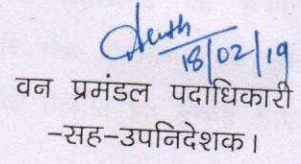 18/02/19
वन प्रमंडल पदाधिकारी
-सह-उपनिदेशक।